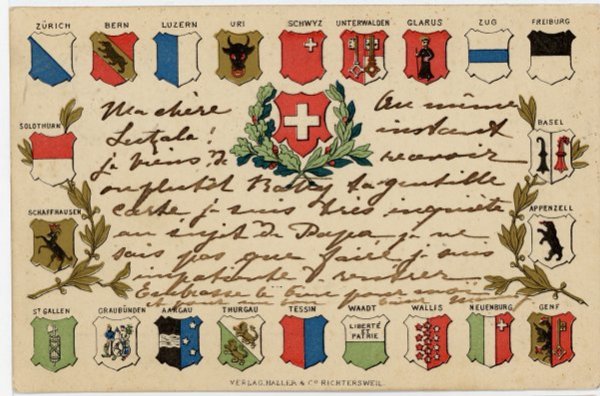 ZÜRICH BERN LUZERN URI SCHWYZ UNTERWALDEN GLARUS ZUG FREIBURG
SOLOTHURN
BASEL
SCHAFFHAUSEN
APPENZELL
Ma chère
!
je viens de
Au même
instant
recevoir
ou plutôt ta gentille
carte je suis très inquiète
au sujet de Papa je ne
sais pas que faire je suis
impatiente de rentrer
Embrasse le bien pour moi
et pour
ST GALLEN GRAUBÜNDEN AARGAU THURGAU TESSIN WAADT WALLIS NEUENBURG GENF
LIBERTÉ
ET
PATRIE
VERLAG HALLER & Co RICHTERSWEIL